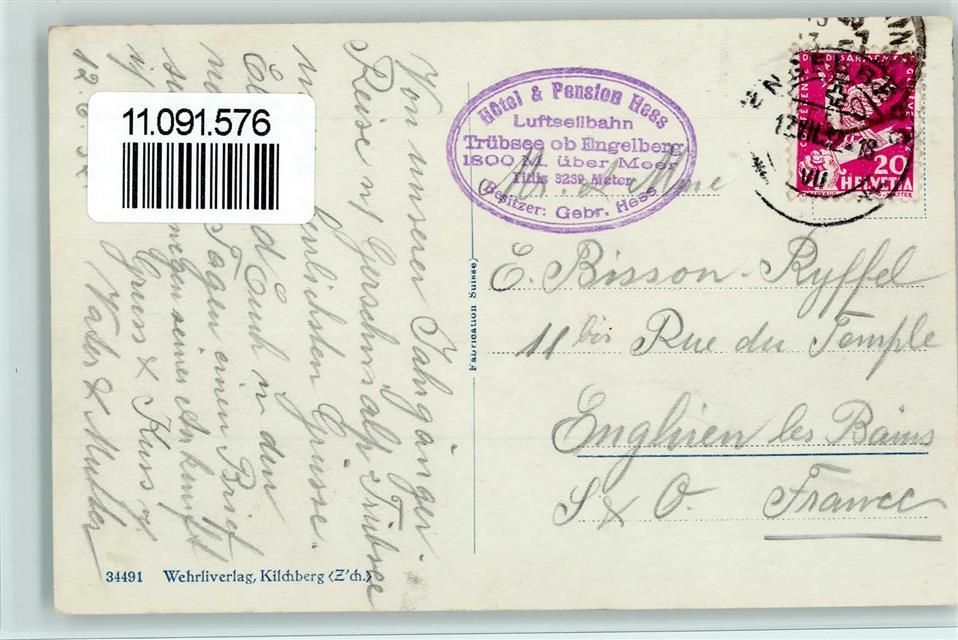 11.091.576
Hôtel & Pension Hess
Luftseilbahn
Trübsee ob Engelberg
1800 M. über Meer
Titlis 3239 Meter
Besitzer: Gebr. Hess
CONFERENCE DU DESARMEMENT GENEVE
20
HELVETIA
Mr & Mme
E. Bisson-Ryffel
11 bis Rue du Temple
Enghien les Bains
S & O. France
Fabrication Suisse
Von unserer Jahrgänger-
Reise n/ Gerschnialp Trübsee
herzlichsten Grüsse.
Euch in den
Tagen einen Brief
seiner Ankunft
Gruss & Kuss v/
Vater & Mutter
12.6.32
34491 Wehrliverlag, Kilchberg (Z'ch.)